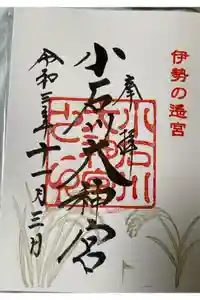 伊勢の遥宮
奉拝
小石川大神宮
令和三年十一月三日